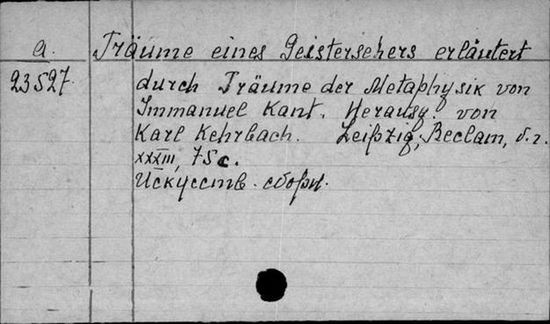 a. Träume eines Geistersehers erläutert
23527. durch Träume der Metaphysik von
Immanuel Kant. Herausg. von
Karl Kehrbach. Leipzig, Reclam, s.a.
XXXIII, 75 c.
Искусств. сборн.